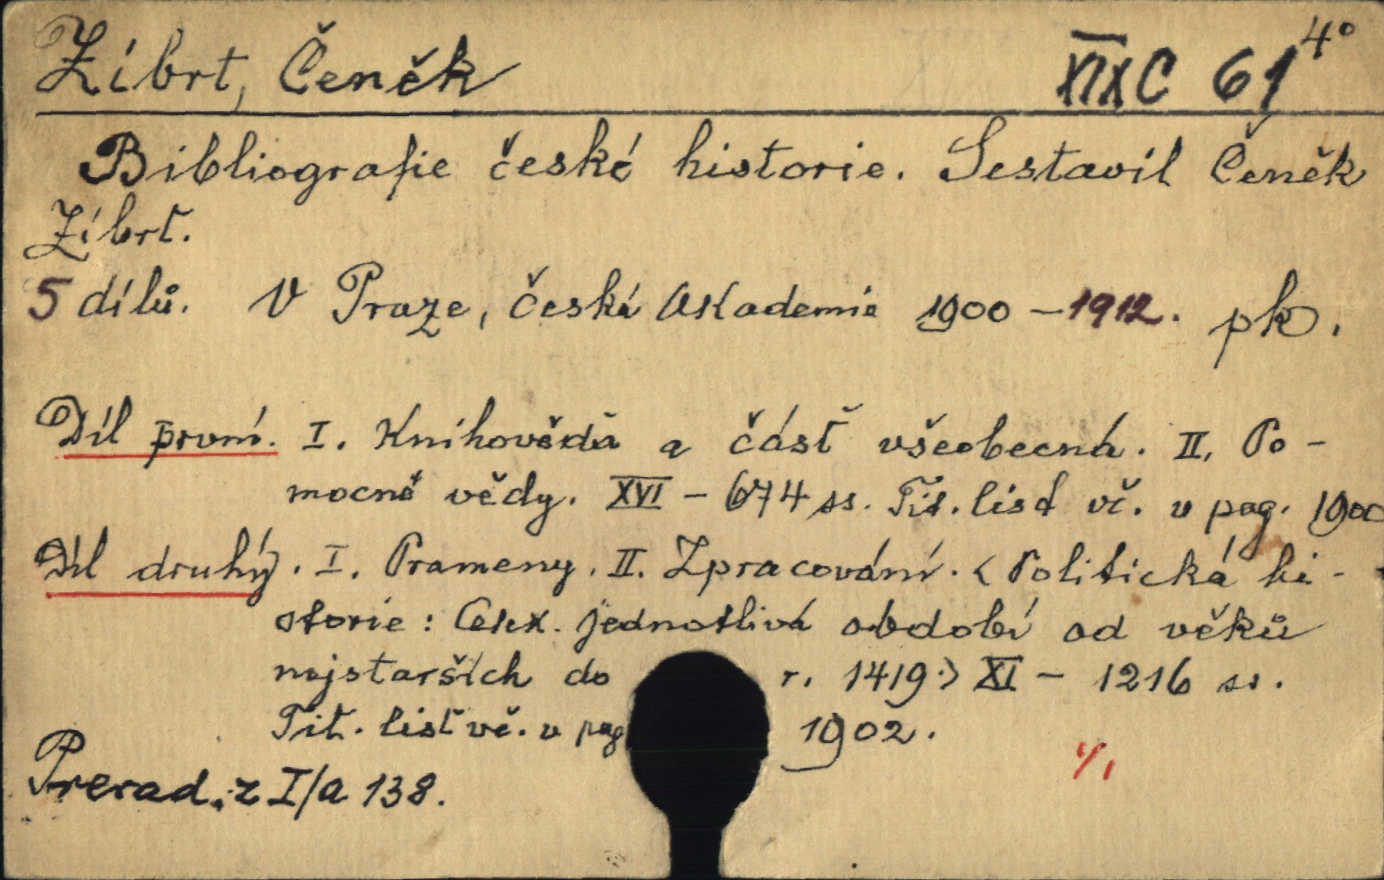 Zíbrt, Čeněk XIX C 61 4°
Bibliografie české historie. Sestavil Čeněk
Zíbrt.
5 dílů. V Praze, Česká Akademie 1900 - 1912. pk.
Díl první. I. Knihověda a část všeobecná. II. Po-
mocné vědy. XVI - 674 ss. Tit. list vč. v pag. 1900
Díl druhý. I. Prameny. II. Zpracování. < Politická hi-
storie: Celek. Jednotlivá období od věků
nejstarších do r. 1419.> XI - 1216 ss.
Tit. list vč. v pag 1902.
Prerad. z I/a 138.
1/1